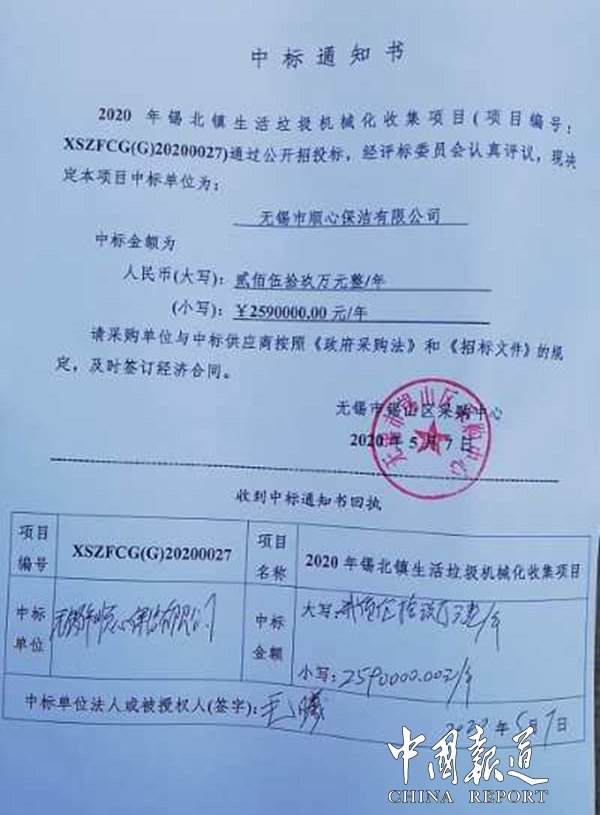 中标通知书
2020年锡北镇生活垃圾机械化收集项目(项目编号:
XSZFCG(G)20200027)通过公开招投标，经评标委员会认真评议，现决
定本项目中标单位为:
无锡市顺心保洁有限公司
中标金额为
人民币(大写): 贰佰伍拾玖万元整/年
(小写): ￥2590000.00 元/年
请采购单位与中标供应商按照《政府采购法》和《招标文件》的规
定，及时签订经济合同。
无锡市锡山区采购中心
2020年5月7日
无锡市锡山区采购中心
收到中标通知书回执
项目编号
XSZFCG(G)20200027
项目名称
2020年锡北镇生活垃圾机械化收集项目
中标单位
无锡市顺心保洁有限公司
中标金额
大写: 贰佰伍拾玖万元整/年
小写: 2590000.00元/年
中标单位法人或被授权人(签字):
2020年5月7日
中国报道
CHINA REPORT